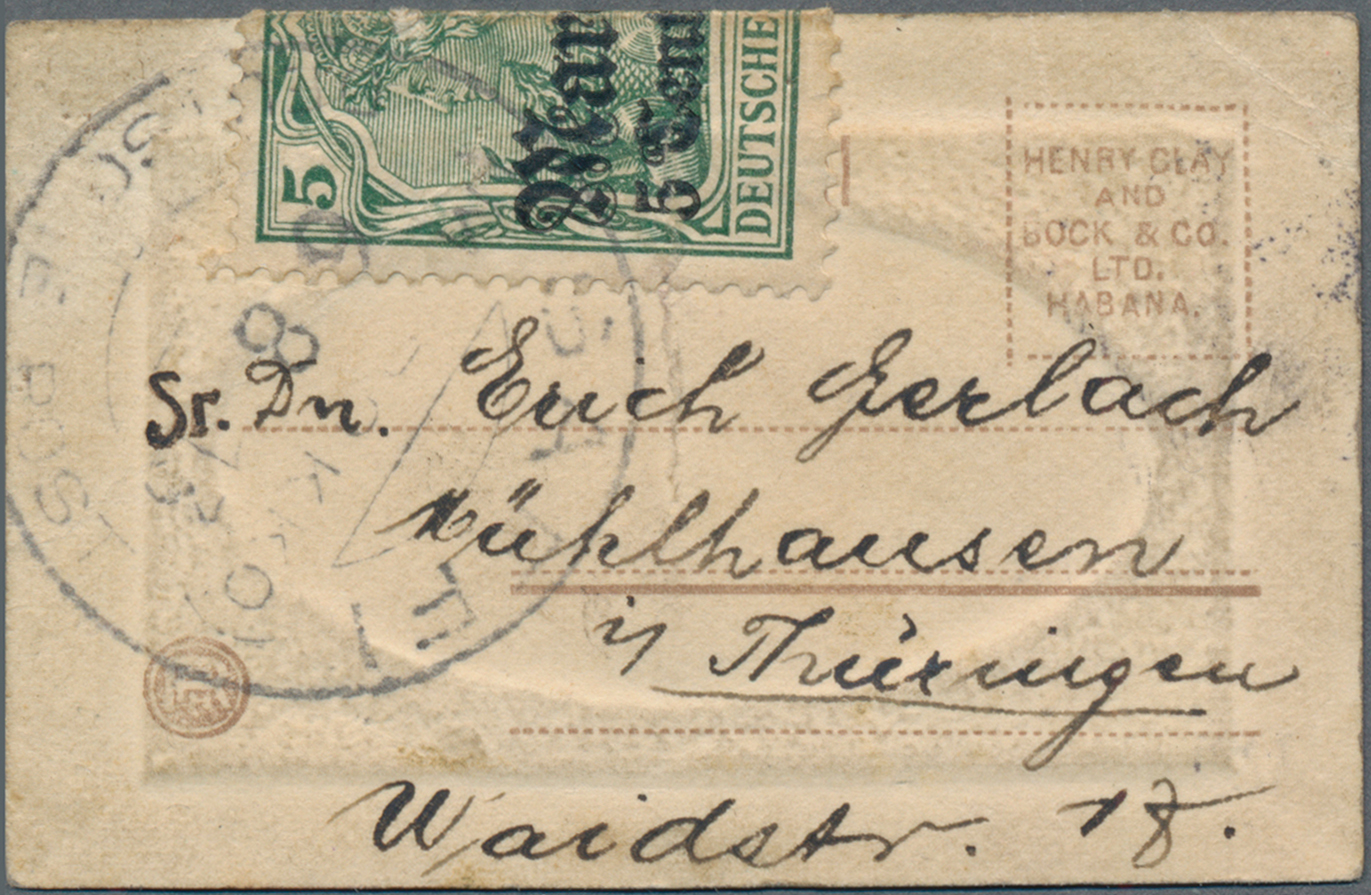 5
DEUTSCHE
5
HENRY CLAY
AND
BOCK & CO.
LTD.
HABANA.
Sr. Dn. Erich Gerlach
Mühlhausen
i/ Thüringen
Waidstr. 18.